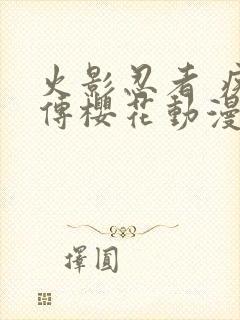 火影忍者 疾
傳櫻花動漫
擇圓